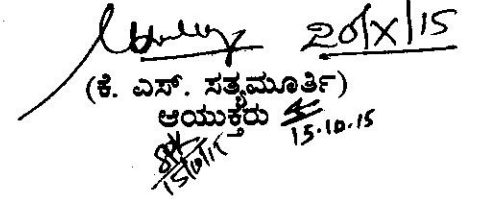 20/X/15
(ಕೆ. ಎಸ್. ಸತ್ಯಮೂರ್ತಿ)
ಆಯುಕ್ತರು
15.10.15